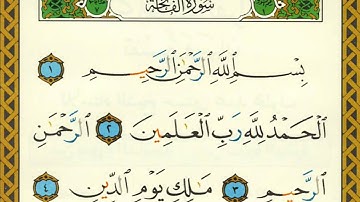 سُورَةُ الْفَاتِحَةِ
بِسْمِ اللَّهِ الرَّحْمَٰنِ الرَّحِيمِ ١
الْحَمْدُ لِلَّهِ رَبِّ الْعَالَمِينَ ٢ الرَّحْمَٰنِ
الرَّحِيمِ ٣ مَالِكِ يَوْمِ الدِّينِ ٤